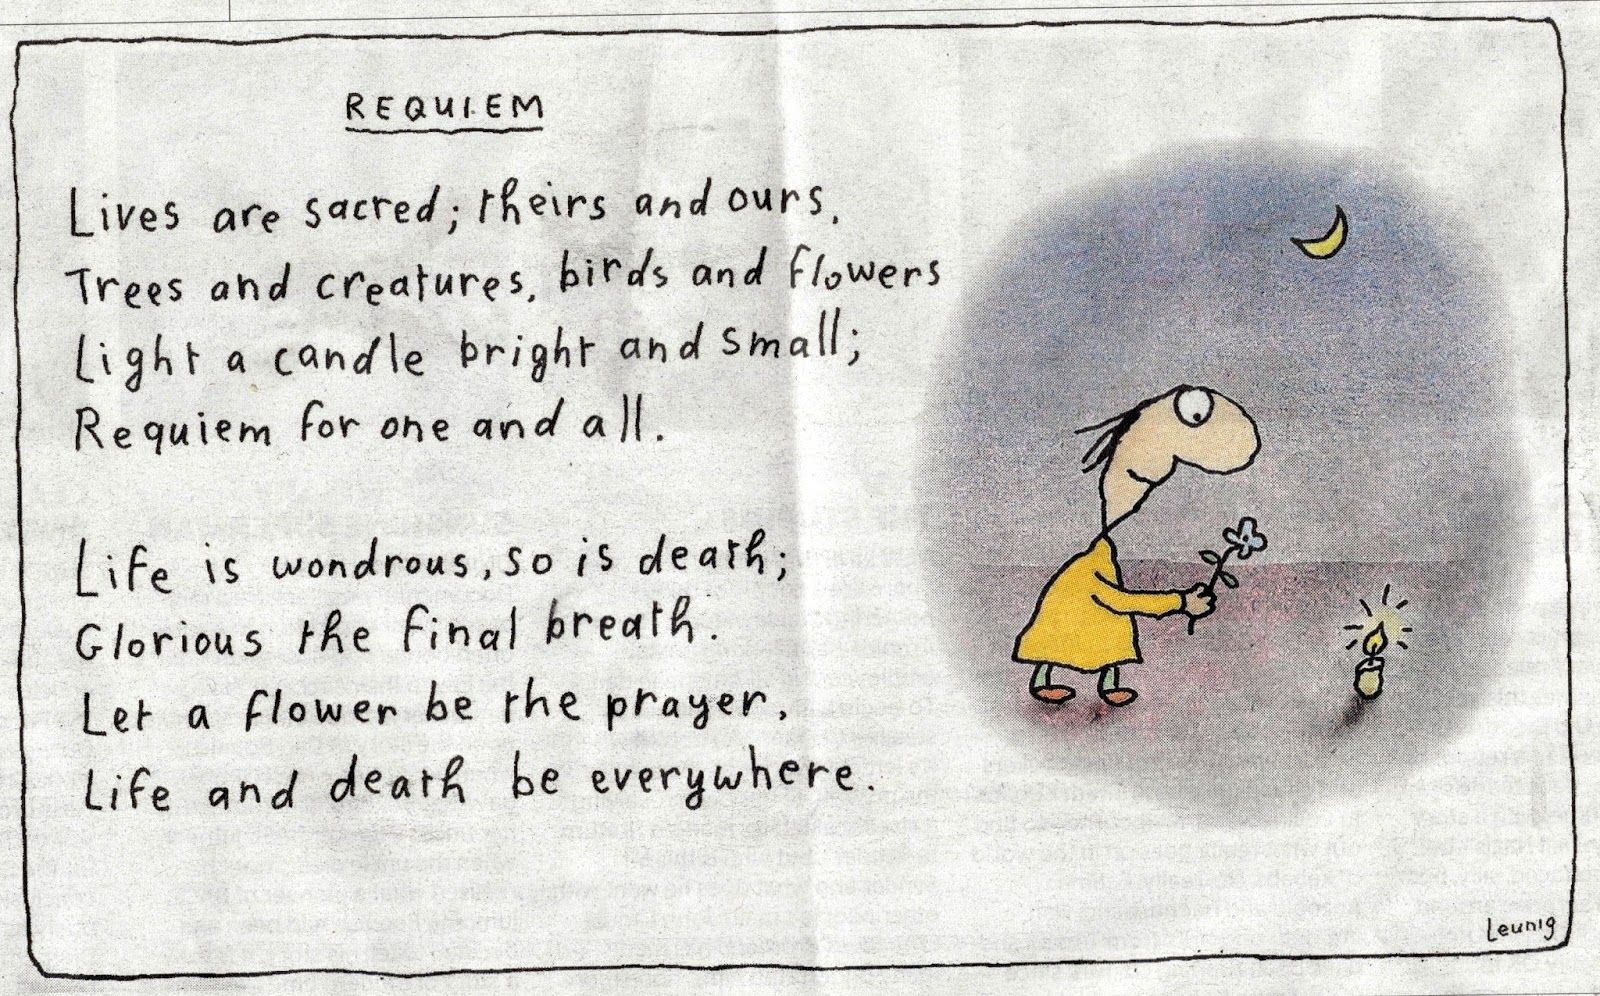 REQUIEM
Lives are sacred; theirs and ours,
Trees and creatures, birds and flowers
Light a candle bright and small;
Requiem for one and all.
Life is wondrous, so is death;
Glorious the final breath.
Let a flower be the prayer,
Life and death be everywhere.
Leunig